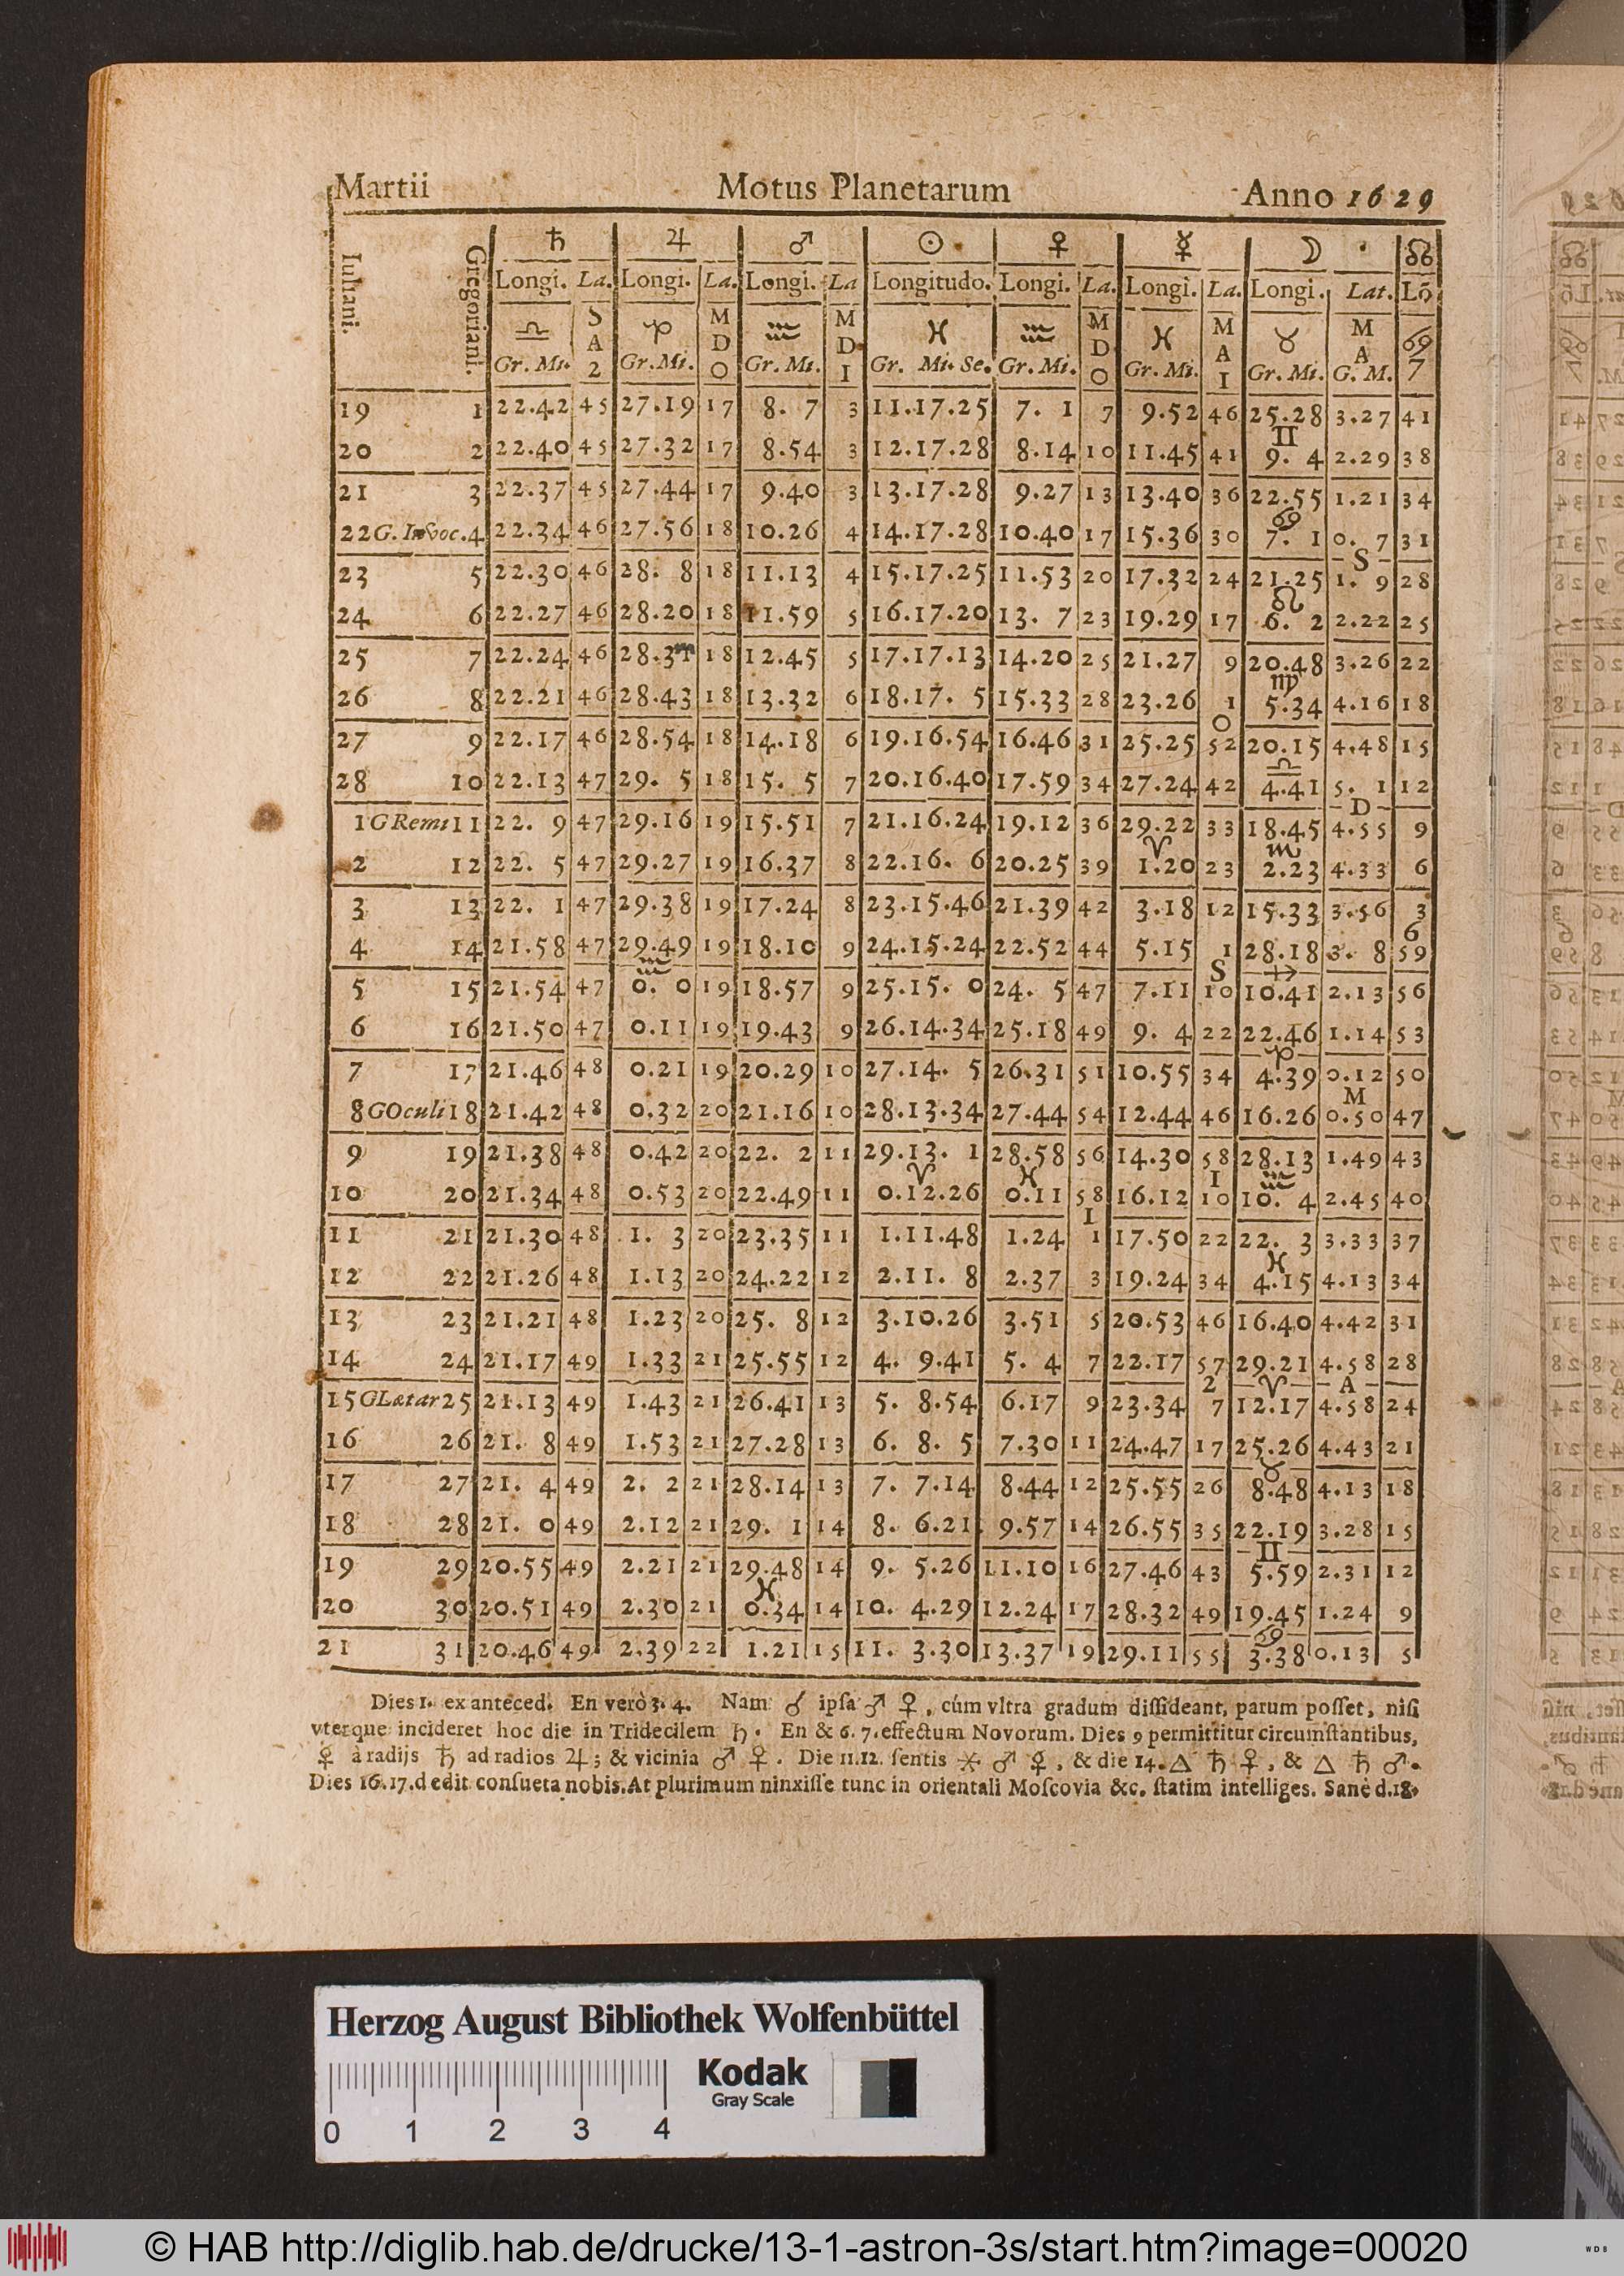 Martii Motus Planetarum Anno 1629
Iuliani. Gregoriani. ♄ ♃ ♂ ☉ ♀ ☿ ☽ ☊
Longi. La. Longi. La. Longi. La Longitudo. Longi. La. Longi. La. Longi. Lat. Lō
♎ S A 2 ♑ M D O ♒ M D I ♓ ♒ M D O ♓ M A I ♉ M A ♋ 7
Gr. Mi. Gr. Mi. Gr. Mi. Gr. Mi. Se. Gr. Mi. Gr. Mi. Gr. Mi. G. M.
19 1 22.42 45 27.19 17 8. 7 3 11.17.25 7. 1 7 9.52 46 25.28 3.27 41
♊
20 2 22.40 45 27.32 17 8.54 3 12.17.28 8.14 10 11.45 41 9. 4 2.29 38
21 3 22.37 45 27.44 17 9.40 3 13.17.28 9.27 13 13.40 36 22.55 1.21 34
♋
22 G. Invoc. 4 22.34 46 27.56 18 10.26 4 14.17.28 10.40 17 15.36 30 7. 1 0. 7 31
S
23 5 22.30 46 28. 8 18 11.13 4 15.17.25 11.53 20 17.32 24 21.25 1. 9 28
♌
24 6 22.27 46 28.20 18 11.59 5 16.17.20 13. 7 23 19.29 17 6. 2 2.22 25
25 7 22.24 46 28.31 18 12.45 5 17.17.13 14.20 25 21.27 9 20.48 3.26 22
♍
26 8 22.21 46 28.43 18 13.32 6 18.17. 5 15.33 28 23.26 1 5.34 4.16 18
O
27 9 22.17 46 28.54 18 14.18 6 19.16.54 16.46 31 25.25 52 20.15 4.48 15
♎
28 10 22.13 47 29. 5 18 15. 5 7 20.16.40 17.59 34 27.24 42 4.41 5. 1 12
D
1 G Remi 11 22. 9 47 29.16 19 15.51 7 21.16.24 19.12 36 29.22 33 18.45 4.55 9
♈ ♏
2 12 22. 5 47 29.27 19 16.37 8 22.16. 6 20.25 39 1.20 23 2.23 4.33 6
3 13 22. 1 47 29.38 19 17.24 8 23.15.46 21.39 42 3.18 12 15.33 3.56 3
6
4 14 21.58 47 29.49 19 18.10 9 24.15.24 22.52 44 5.15 1 28.18 3. 8 59
♒ S ♐
5 15 21.54 47 0. 0 19 18.57 9 25.15. 0 24. 5 47 7.11 10 10.41 2.13 56
6 16 21.50 47 0.11 19 19.43 9 26.14.34 25.18 49 9. 4 22 22.46 1.14 53
♑
7 17 21.46 48 0.21 19 20.29 10 27.14. 5 26.31 51 10.55 34 4.39 0.12 50
M
8 G Oculi 18 21.42 48 0.32 20 21.16 10 28.13.34 27.44 54 12.44 46 16.26 0.50 47
9 19 21.38 48 0.42 20 22. 2 11 29.13. 1 28.58 56 14.30 58 28.13 1.49 43
♈ ♓ I ♒
10 20 21.34 48 0.53 20 22.49 11 0.12.26 0.11 58 16.12 10 10. 4 2.45 40
I
11 21 21.30 48 1. 3 20 23.35 11 1.11.48 1.24 1 17.50 22 22. 3 3.33 37
♓
12 22 21.26 48 1.13 20 24.22 12 2.11. 8 2.37 3 19.24 34 4.15 4.13 34
13 23 21.21 48 1.23 20 25. 8 12 3.10.26 3.51 5 20.53 46 16.40 4.42 31
14 24 21.17 49 1.33 21 25.55 12 4. 9.41 5. 4 7 22.17 57 29.21 4.58 28
2 ♈ A
15 G Lætar 25 21.13 49 1.43 21 26.41 13 5. 8.54 6.17 9 23.34 7 12.17 4.58 24
16 26 21. 8 49 1.53 21 27.28 13 6. 8. 5 7.30 11 24.47 17 25.26 4.43 21
♉
17 27 21. 4 49 2. 2 21 28.14 13 7. 7.14 8.44 12 25.55 26 8.48 4.13 18
18 28 21. 0 49 2.12 21 29. 1 14 8. 6.21 9.57 14 26.55 35 22.19 3.28 15
♊
19 29 20.55 49 2.21 21 29.48 14 9. 5.26 11.10 16 27.46 43 5.59 2.31 12
♓
20 30 20.51 49 2.30 21 0.34 14 10. 4.29 12.24 17 28.32 49 19.45 1.24 9
♋
21 31 20.46 49 2.39 22 1.21 15 11. 3.30 13.37 19 29.11 55 3.38 0.13 5
Dies 1. ex anteced. En verò 3. 4. Nam ☌ ipſa ♂ ♀, cúm vltra gradum diſſideant, parum poſſet, niſi
vterque incideret hoc die in Tridecilem ♄. En & 6. 7. effectum Novorum. Dies 9 permittitur circumſtantibus,
☿ à radijs ♄ ad radios ♃; & vicinia ♂ ♀. Die 11.12. ſentis ⚹ ♂ ☿, & die 14. △ ♄ ♀, & △ ♄ ♂.
Dies 16.17. dedit conſueta nobis. At plurimum ninxiſſe tunc in orientali Moſcovia &c. ſtatim intelliges. Sanè d.18.
Herzog August Bibliothek Wolfenbüttel
Kodak
Gray Scale
0 1 2 3 4
© HAB http://diglib.hab.de/drucke/13-1-astron-3s/start.htm?image=00020
WDB